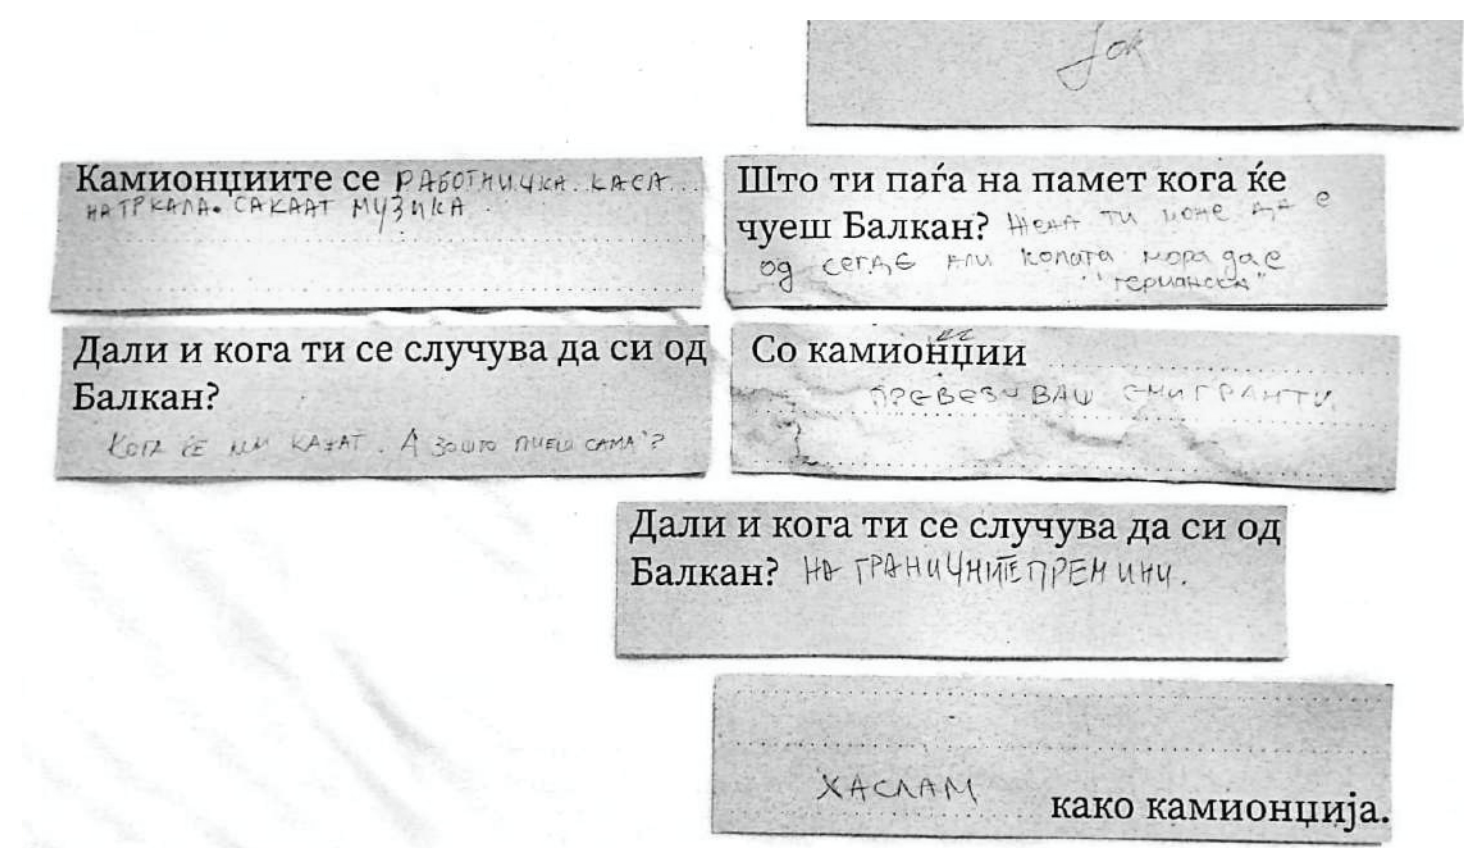 Јок
Камионџиите се РАБОТНИЧКА КЛАСА...
НА ТРКАЛА. САКААТ МУЗИКА.
Што ти паѓа на памет кога ќе
чуеш Балкан? Жена ти може да е
од сегде али колата мора да е
"германска"
Дали и кога ти се случува да си од
Балкан?
КОГА ЌЕ МИ КАЖАТ. А ЗОШТО ПИЕШ САМА?
Со камионџии
ПРЕВЕЗУВАШ ЕМИГРАНТИ.
Дали и кога ти се случува да си од
Балкан? НА ГРАНИЧНИТЕ ПРЕМИНИ.
ХАСЛАМ како камионџија.